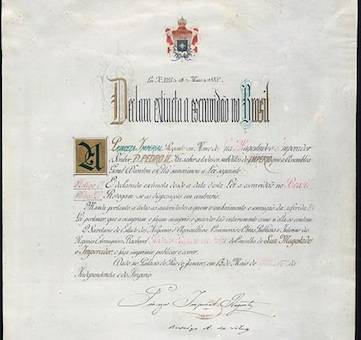 Declara extincta a escravidão no Brasil
A Princeza Imperial Regente em Nome de Sua Magestade o Imperador
o Senhor D. PEDRO II, Faz saber a todos os subditos do IMPERIO que a Assembléa
Geral Decretou e Ella sanccionou a Lei seguinte:
Artigo 1º É declarada extincta desde a data desta Lei a escravidão no Brazil
Revogam-se as disposições em contrario.
Manda portanto a todas as autoridades a quem o conhecimento e execução da referida
Lei pertencer, que a cumpram e façam cumprir e guardar tão inteiramente como nella se contem.
O Secretario de Estado dos Negocios d'Agricultura, Commercio e Obras Publicas e Interino dos
Negocios Estrangeiros, Bacharel do Conselho de Sua Magestade
o Imperador, o faça imprimir, publicar e correr.
Dado no Palacio do Rio de Janeiro, em 13 de Maio
Independencia e do Imperio.
Princeza Imperial Regente
Rodrigo A. da Silva